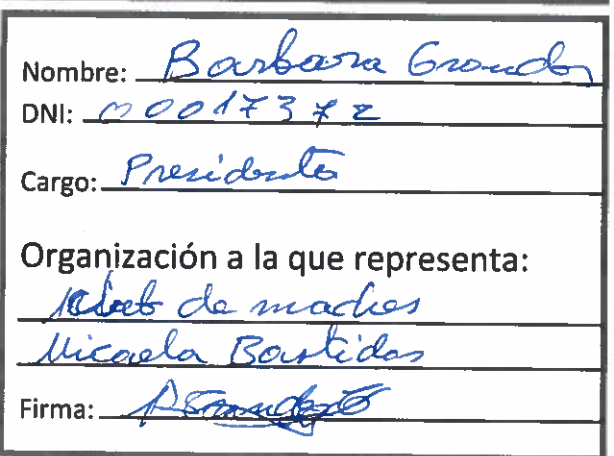 Nombre: Barbara Grandez
DNI: 00017372
Cargo: Presidenta
Organización a la que representa:
Club de madres
Micaela Bastidas
Firma: